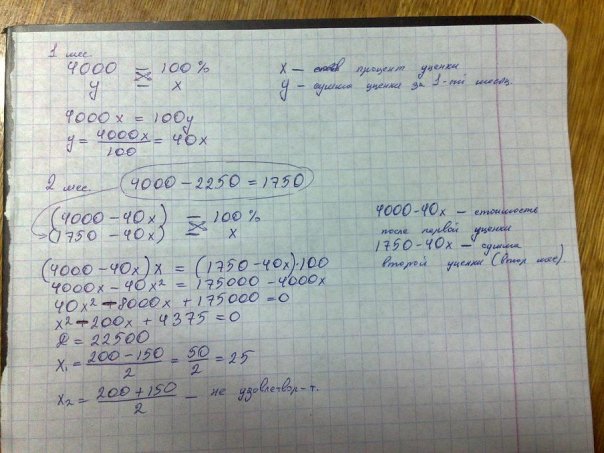 1 мес.
4000 = 100%
y = x
x — процент уценки
y — сумма уценки за 1-ый месяц.
4000x = 100y
y = 4000x/100 = 40x
2 мес. 4000 - 2250 = 1750
(4000 - 40x) = 100%
(1750 - 40x) = x
4000-40x — стоимость
после первой уценки
1750-40x — сумма
второй уценки (втор мес).
(4000-40x)x = (1750-40x)·100
4000x - 40x² = 175000 - 4000x
40x² - 8000x + 175000 = 0
x² - 200x + 4375 = 0
D = 22500
x₁ = (200-150)/2 = 50/2 = 25
x₂ = (200+150)/2 — не удовлетвор-т.